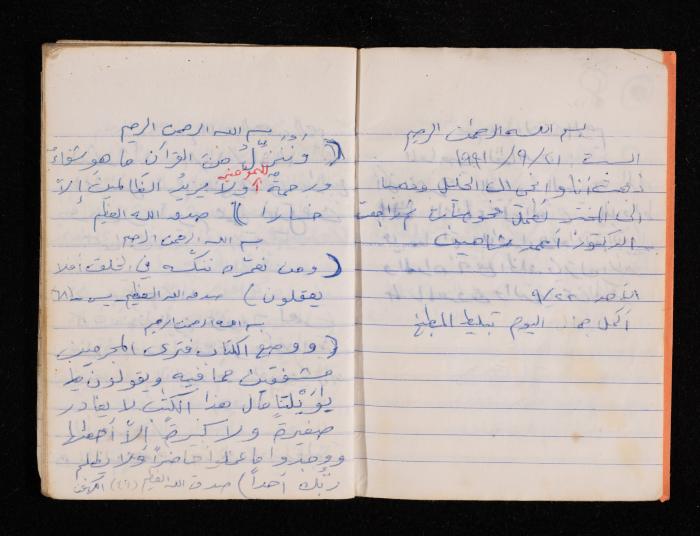 بسم الله الرحمن الرحيم
السبت ٢١/٩/١٩٩١
ذهبت أنا و إلى الخليل وذهبنا
إلى المختبر لعمل فحوصات ثم راجعت
الدكتور أحمد شاهين
الأحد ٢٢/٩
أكمل اليوم تبليط المطبخ
بسم الله الرحمن الرحيم
( وننزّلُ من القرآن ما هو شفاءٌ
ورحمةٌ للمؤمنين ولا يزيدُ الظالمين إلاّ
خسارا ) صدق الله العظيم
بسم الله الرحمن الرحيم
( ومن نعمّره ننكّسه في الخلق أفلا
يعقلون ) صدق الله العظيم يس ٦٨
بسم الله الرحمن الرحيم
( ووضع الكتاب فترى المجرمين
مشفقين مما فيه ويقولون
يوَيْلتنا مال هذا الكتب لا يغادر
صغيرة ولا كبيرةً إلاّ أحصاها
ووجدوا ما عملوا حاضراً ولا يظلم
ربّك أحداً ) صدق الله العظيم (٤٩) الكهف